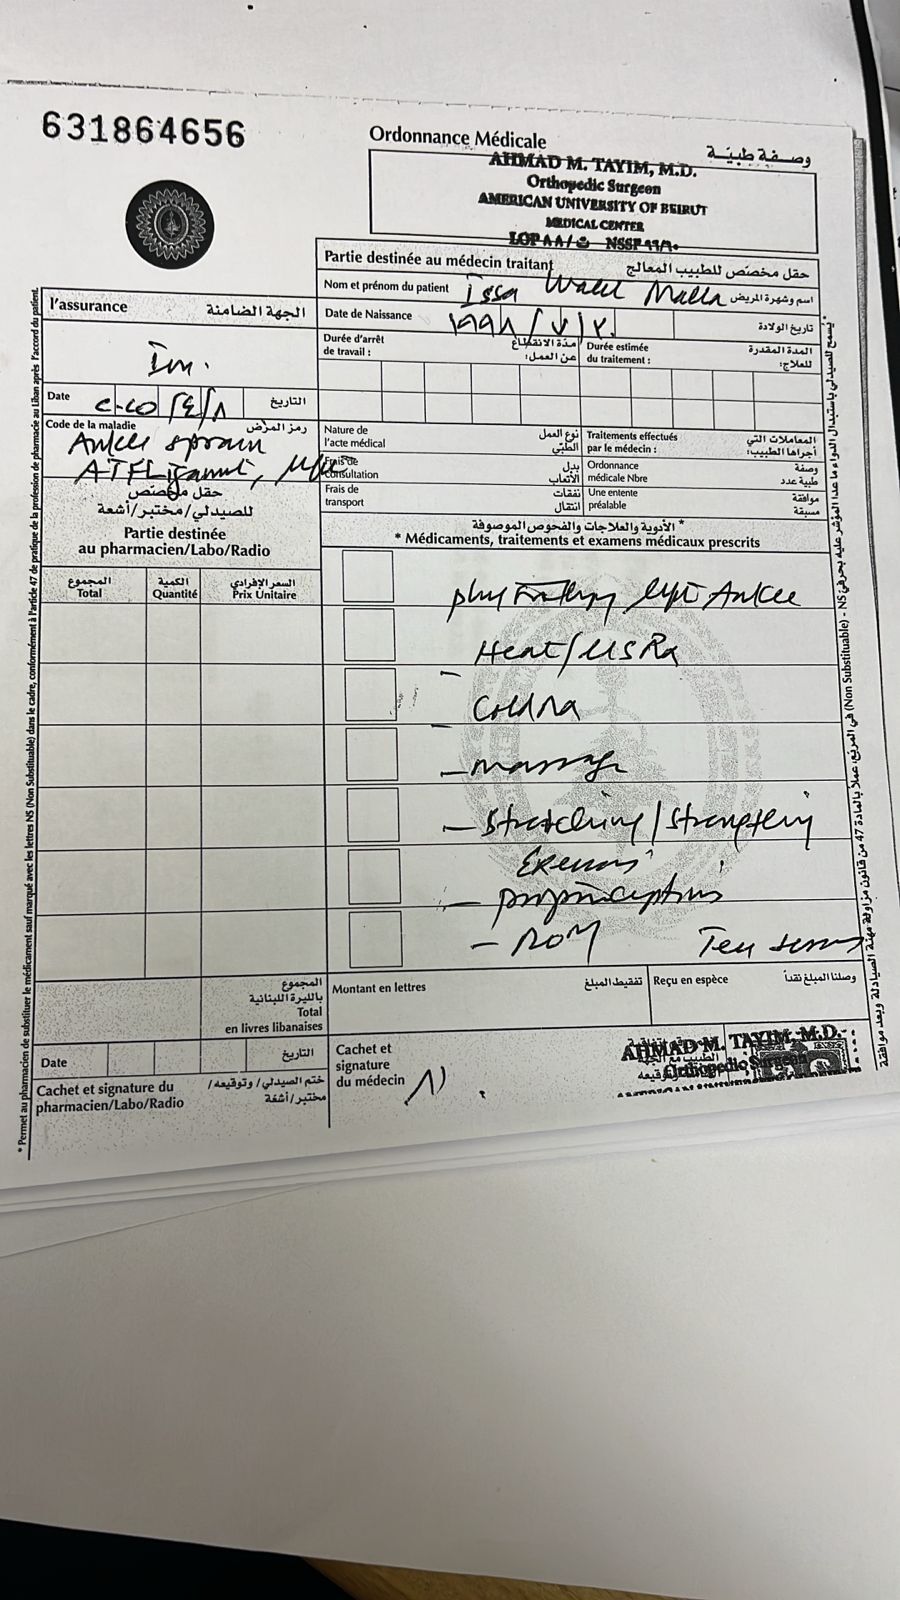 631864656
Ordonnance Médicale
وصفة طبيّة
AHMAD M. TAYIM, M.D.
Orthopedic Surgeon
AMERICAN UNIVERSITY OF BEIRUT
MEDICAL CENTER
Partie destinée au médecin traitant حقل مخصّص للطبيب المعالج
Nom et prénom du patient Issa Walid Malla اسم وشهرة المريض
Date de Naissance ١٩٩٨/٧/٢٠ تاريخ الولادة
Durée d'arrêt de travail : مدّة الانقطاع عن العمل:
Durée estimée du traitement : المدة المقدرة للعلاج:
l'assurance الجهة الضامنة
Date ٢٠٢٥/٤/٨ التاريخ
Code de la maladie رمز المرض
Ankle sprain
ATFL
Nature de l'acte médical نوع العمل الطبّي
Traitements effectués par le médecin : المعاملات التي أجراها الطبيب:
Frais de consultation بدل الأتعاب
Ordonnance médicale Nbre وصفة طبية عدد
Frais de transport نفقات انتقال
Une entente préalable موافقة مسبقة
حقل مخصّص
للصيدلي/مختبر/أشعة
Partie destinée
au pharmacien/Labo/Radio
* الأدوية والعلاجات والفحوص الموصوفة
* Médicaments, traitements et examens médicaux prescrits
المجموع Total
الكمية Quantité
السعر الإفرادي Prix Unitaire
left Ankle
Heat/USRx
- massage
- Stretching/Strengthening
- proprioception
- ROM Ten
المجموع
بالليرة اللبنانية
Total
en livres libanaises
Montant en lettres تفقيط المبلغ
Reçu en espèce وصلنا المبلغ نقداً
Date التاريخ
Cachet et signature du pharmacien/Labo/Radio ختم الصيدلي/ وتوقيعه/ مختبر/أشعّة
Cachet et signature du médecin
AHMAD M. TAYIM, M.D.
Orthopedic Surgeon
* Permet au pharmacien de substituer le médicament sauf marqué avec les lettres NS (Non Substituable) dans le cadre, conformément à l'article 47 de pratique de la profession de pharmacie au Liban après l'accord du patient.